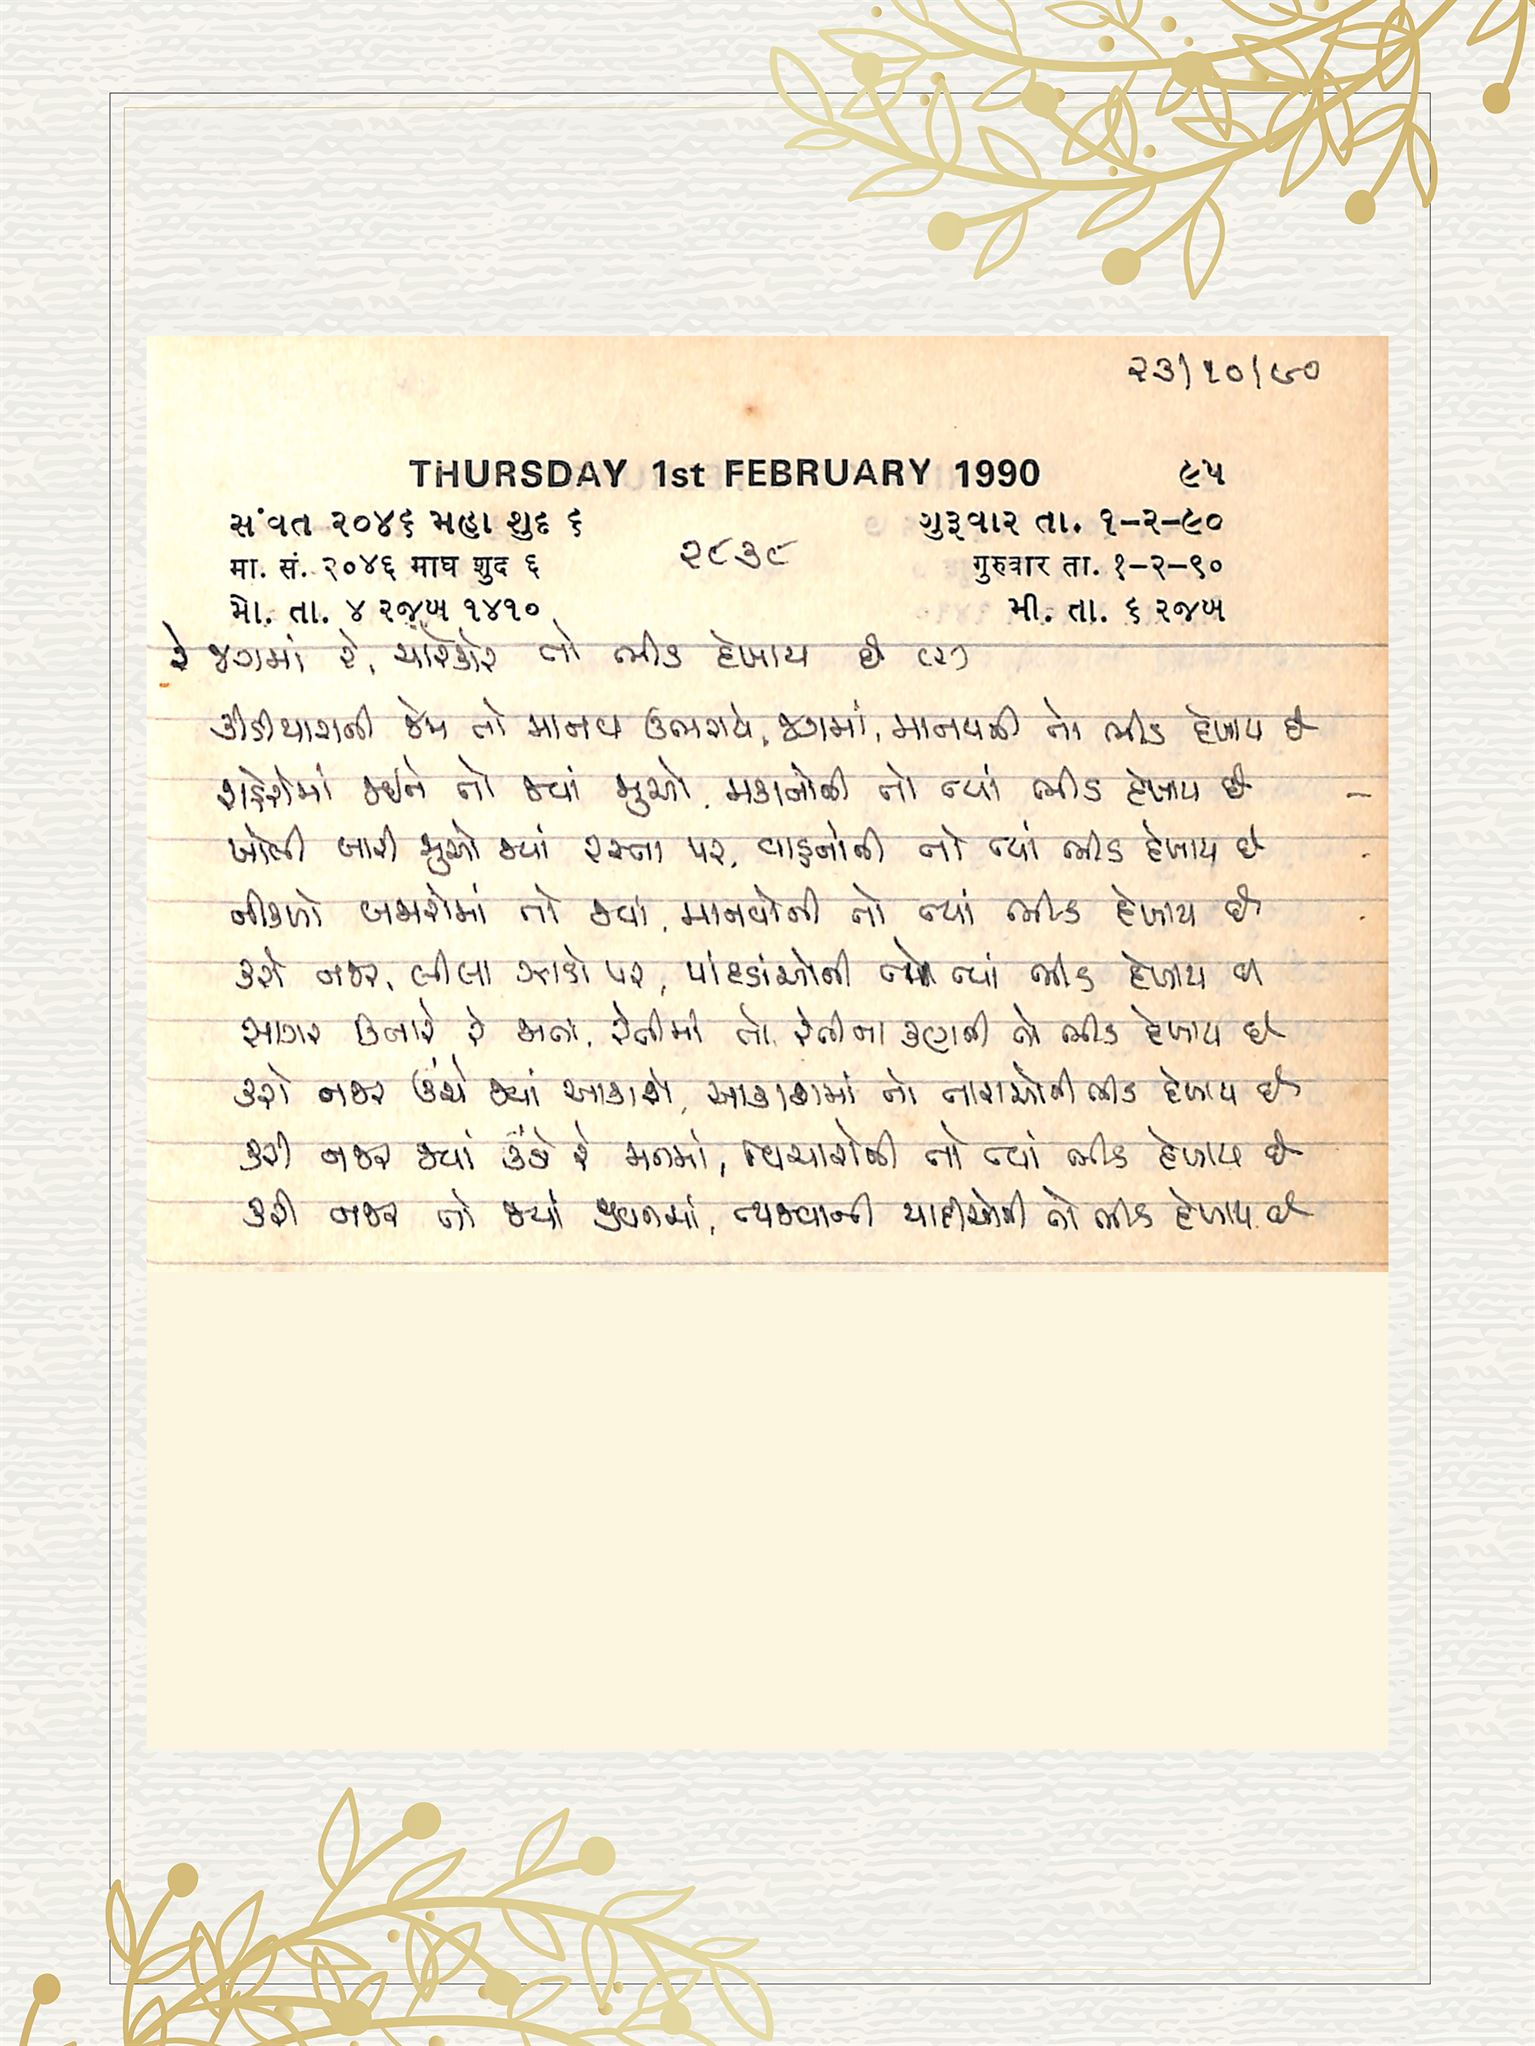 ૨૩/૧૦/૯૦
THURSDAY 1st FEBRUARY 1990 ૯૫
સંવત ૨૦૪૬ મહા શુદ ૬ ગુરૂવાર તા. ૧-૨-૯૦
मा. सं. २०४६ माघ शुद ६ ૨૮૩૯ गुरुवार ता. १-२-९०
મો. તા. ૪ રજબ ૧૪૧૦ મી. તા. ૬ રજબ
રે જગમાં રે, ચારેકોરે તો ભીડ દેખાય છે (૨)
કીડીયારાની જેમ તો માનવ ઉભરાયે, જગમાં, માનવની તો ભીડ દેખાય છે
શહેરોમાં જઈને તો જ્યાં જુઓ, મકાનોની તો ત્યાં ભીડ દેખાય છે
ખોલી બારી જુઓ જ્યાં રસ્તા પર, વાહનોની તો ત્યાં ભીડ દેખાય છે
નીકળો બજારોમાં તો જ્યાં, માનવોની તો ત્યાં ભીડ દેખાય છે
કરો નજર, લીલા ઝાડો પર, પાંદડાંઓની ત્યાં ભીડ દેખાય છે
સાગર કિનારે રે જાતા, રેતીમાં તો, રેતીના કણની તો ભીડ દેખાય છે
કરો નજર ઉંચે જ્યાં આકાશે, આકાશમાં તો તારાઓની ભીડ દેખાય છે
કરી નજર જ્યાં ઊંડે રે મનમાં, વિચારોની તો ત્યાં ભીડ દેખાય છે
કરી નજર તો જ્યાં જીવનમાં, ત્યજવાની યાદીઓની તો ભીડ દેખાય છે